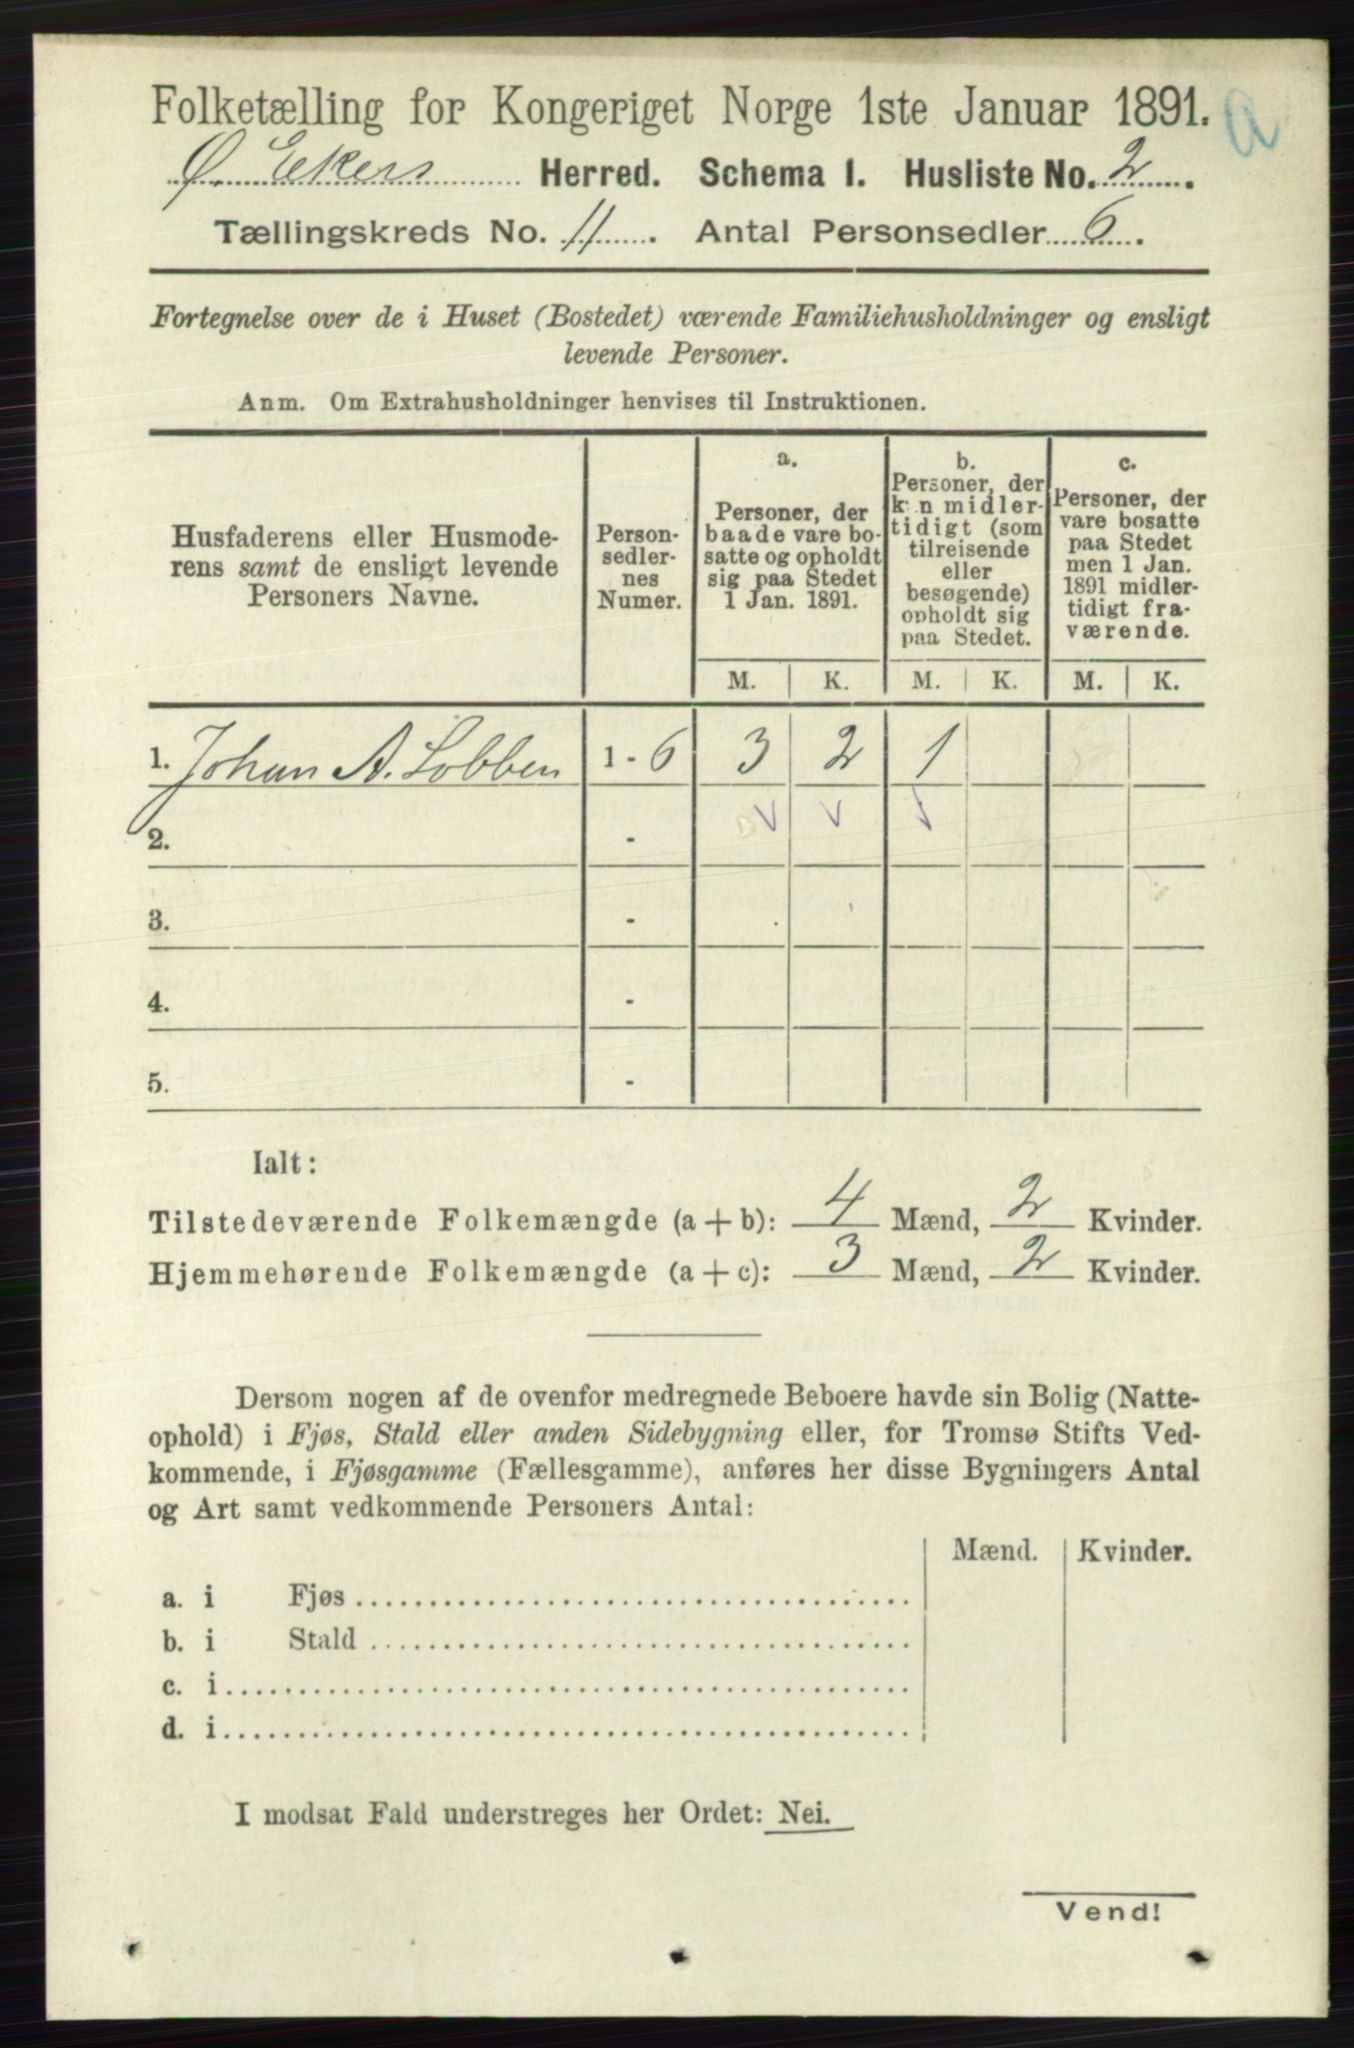 Folketælling for Kongeriget Norge 1ste Januar 1891.
a
Ø. Ekers Herred. Schema I. Husliste No. 2.
Tællingskreds No. 11. Antal Personsedler 6.
Fortegnelse over de i Huset (Bostedet) værende Familiehusholdninger og ensligt
levende Personer.
Anm. Om Extrahusholdninger henvises til Instruktionen.
Husfaderens eller Husmode-
rens samt de ensligt levende
Personers Navne.
Person-
sedler-
nes
Numer.
a.
Personer, der
baade vare bo-
satte og opholdt
sig paa Stedet
1 Jan. 1891.
b.
Personer, der
kun midler-
tidigt (som
tilreisende
eller
besøgende)
opholdt sig
paa Stedet.
c.
Personer, der
vare bosatte
paa Stedet
men 1 Jan.
1891 midler-
tidigt fra-
værende.
M. K. M. K. M. K.
1. Johan A. Lobben 1 - 6 3 2 1
2. -
3. -
4. -
5. -
Ialt:
Tilstedeværende Folkemængde (a + b): 4 Mænd, 2 Kvinder.
Hjemmehørende Folkemængde (a + c): 3 Mænd, 2 Kvinder.
Dersom nogen af de ovenfor medregnede Beboere havde sin Bolig (Natte-
ophold) i Fjøs, Stald eller anden Sidebygning eller, for Tromsø Stifts Ved-
kommende, i Fjøsgamme (Fællesgamme), anføres her disse Bygningers Antal
og Art samt vedkommende Personers Antal:
Mænd. Kvinder.
a. i Fjøs
b. i Stald
c. i
d. i
I modsat Fald understreges her Ordet: Nei.
Vend!